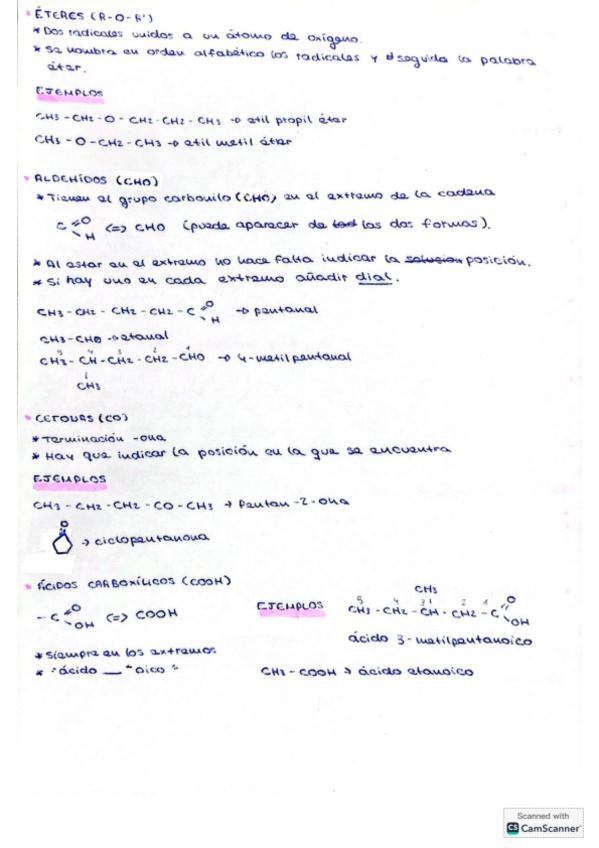 • ÉTERES (R-O-R')
* Dos radicales unidos a un átomo de oxígeno.
* Se nombra en orden alfabético los radicales y d seguido la palabra
éter.
EJEMPLOS
CH3 - CH2 - O - CH2 - CH2 - CH3 → etil propil éter
CH3 - O - CH2 - CH3 → etil metil éter
• ALDEHÍDOS (CHO)
* Tienen el grupo carbonilo (CHO) en el extremo de la cadena
C=O H <=> CHO (puede aparecer de las dos formas).
* Al estar en el extremo no hace falta indicar la solucion posición.
* Si hay uno en cada extremo añadir dial.
CH3 - CH2 - CH2 - CH2 - C=O H → pentanal
CH3 - CHO → etanal
5 4 3 2 1
CH3 - CH - CH2 - CH2 - CHO → 4-metilpentanal
CH3
• CETONAS (CO)
* Terminación -ona
* Hay que indicar la posición en la que se encuentra
EJEMPLOS
CH3 - CH2 - CH2 - CO - CH3 → Pentan-2-ona
O
→ ciclopentanona
• ÁCIDOS CARBOXÍLICOS (COOH)
- C=O OH <=> COOH
* Siempre en los extremos
* "ácido __ "oico"
EJEMPLOS
CH3
5 4 3 2 1
CH3 - CH2 - CH - CH2 - C=O OH
ácido 3-metilpentanoico
CH3 - COOH → ácido etanoico
Scanned with
CS CamScanner